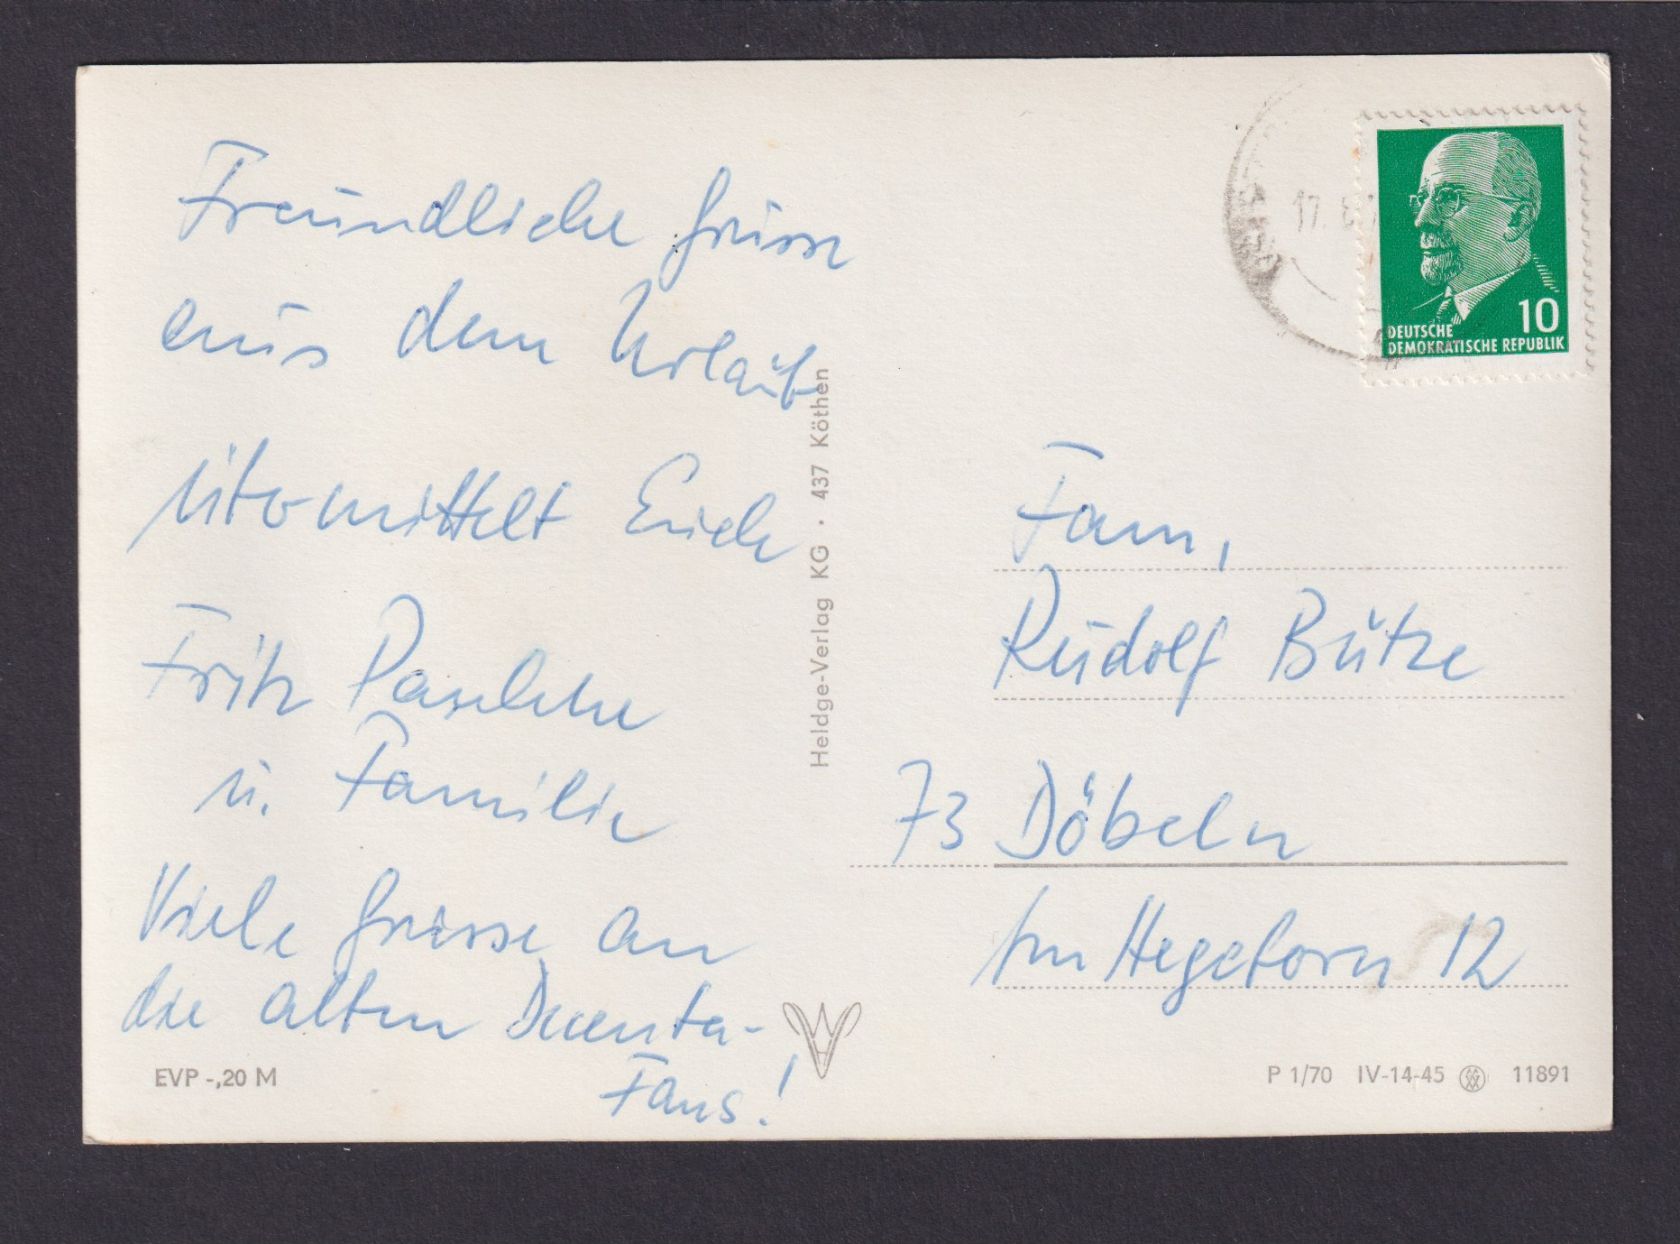 Freundliche Grüsse
aus dem Urlaub
übermittelt Euch
Fritz
u. Familie
Viele Grüsse an
die alten
Fans!
EVP -,20 M
Heldge-Verlag KG · 437 Köthen
17.
10
DEUTSCHE
DEMOKRATISCHE REPUBLIK
Fam.
Rudolf Butze
73 Döbeln
Am Hegeborn 12
P 1/70 IV-14-45 11891